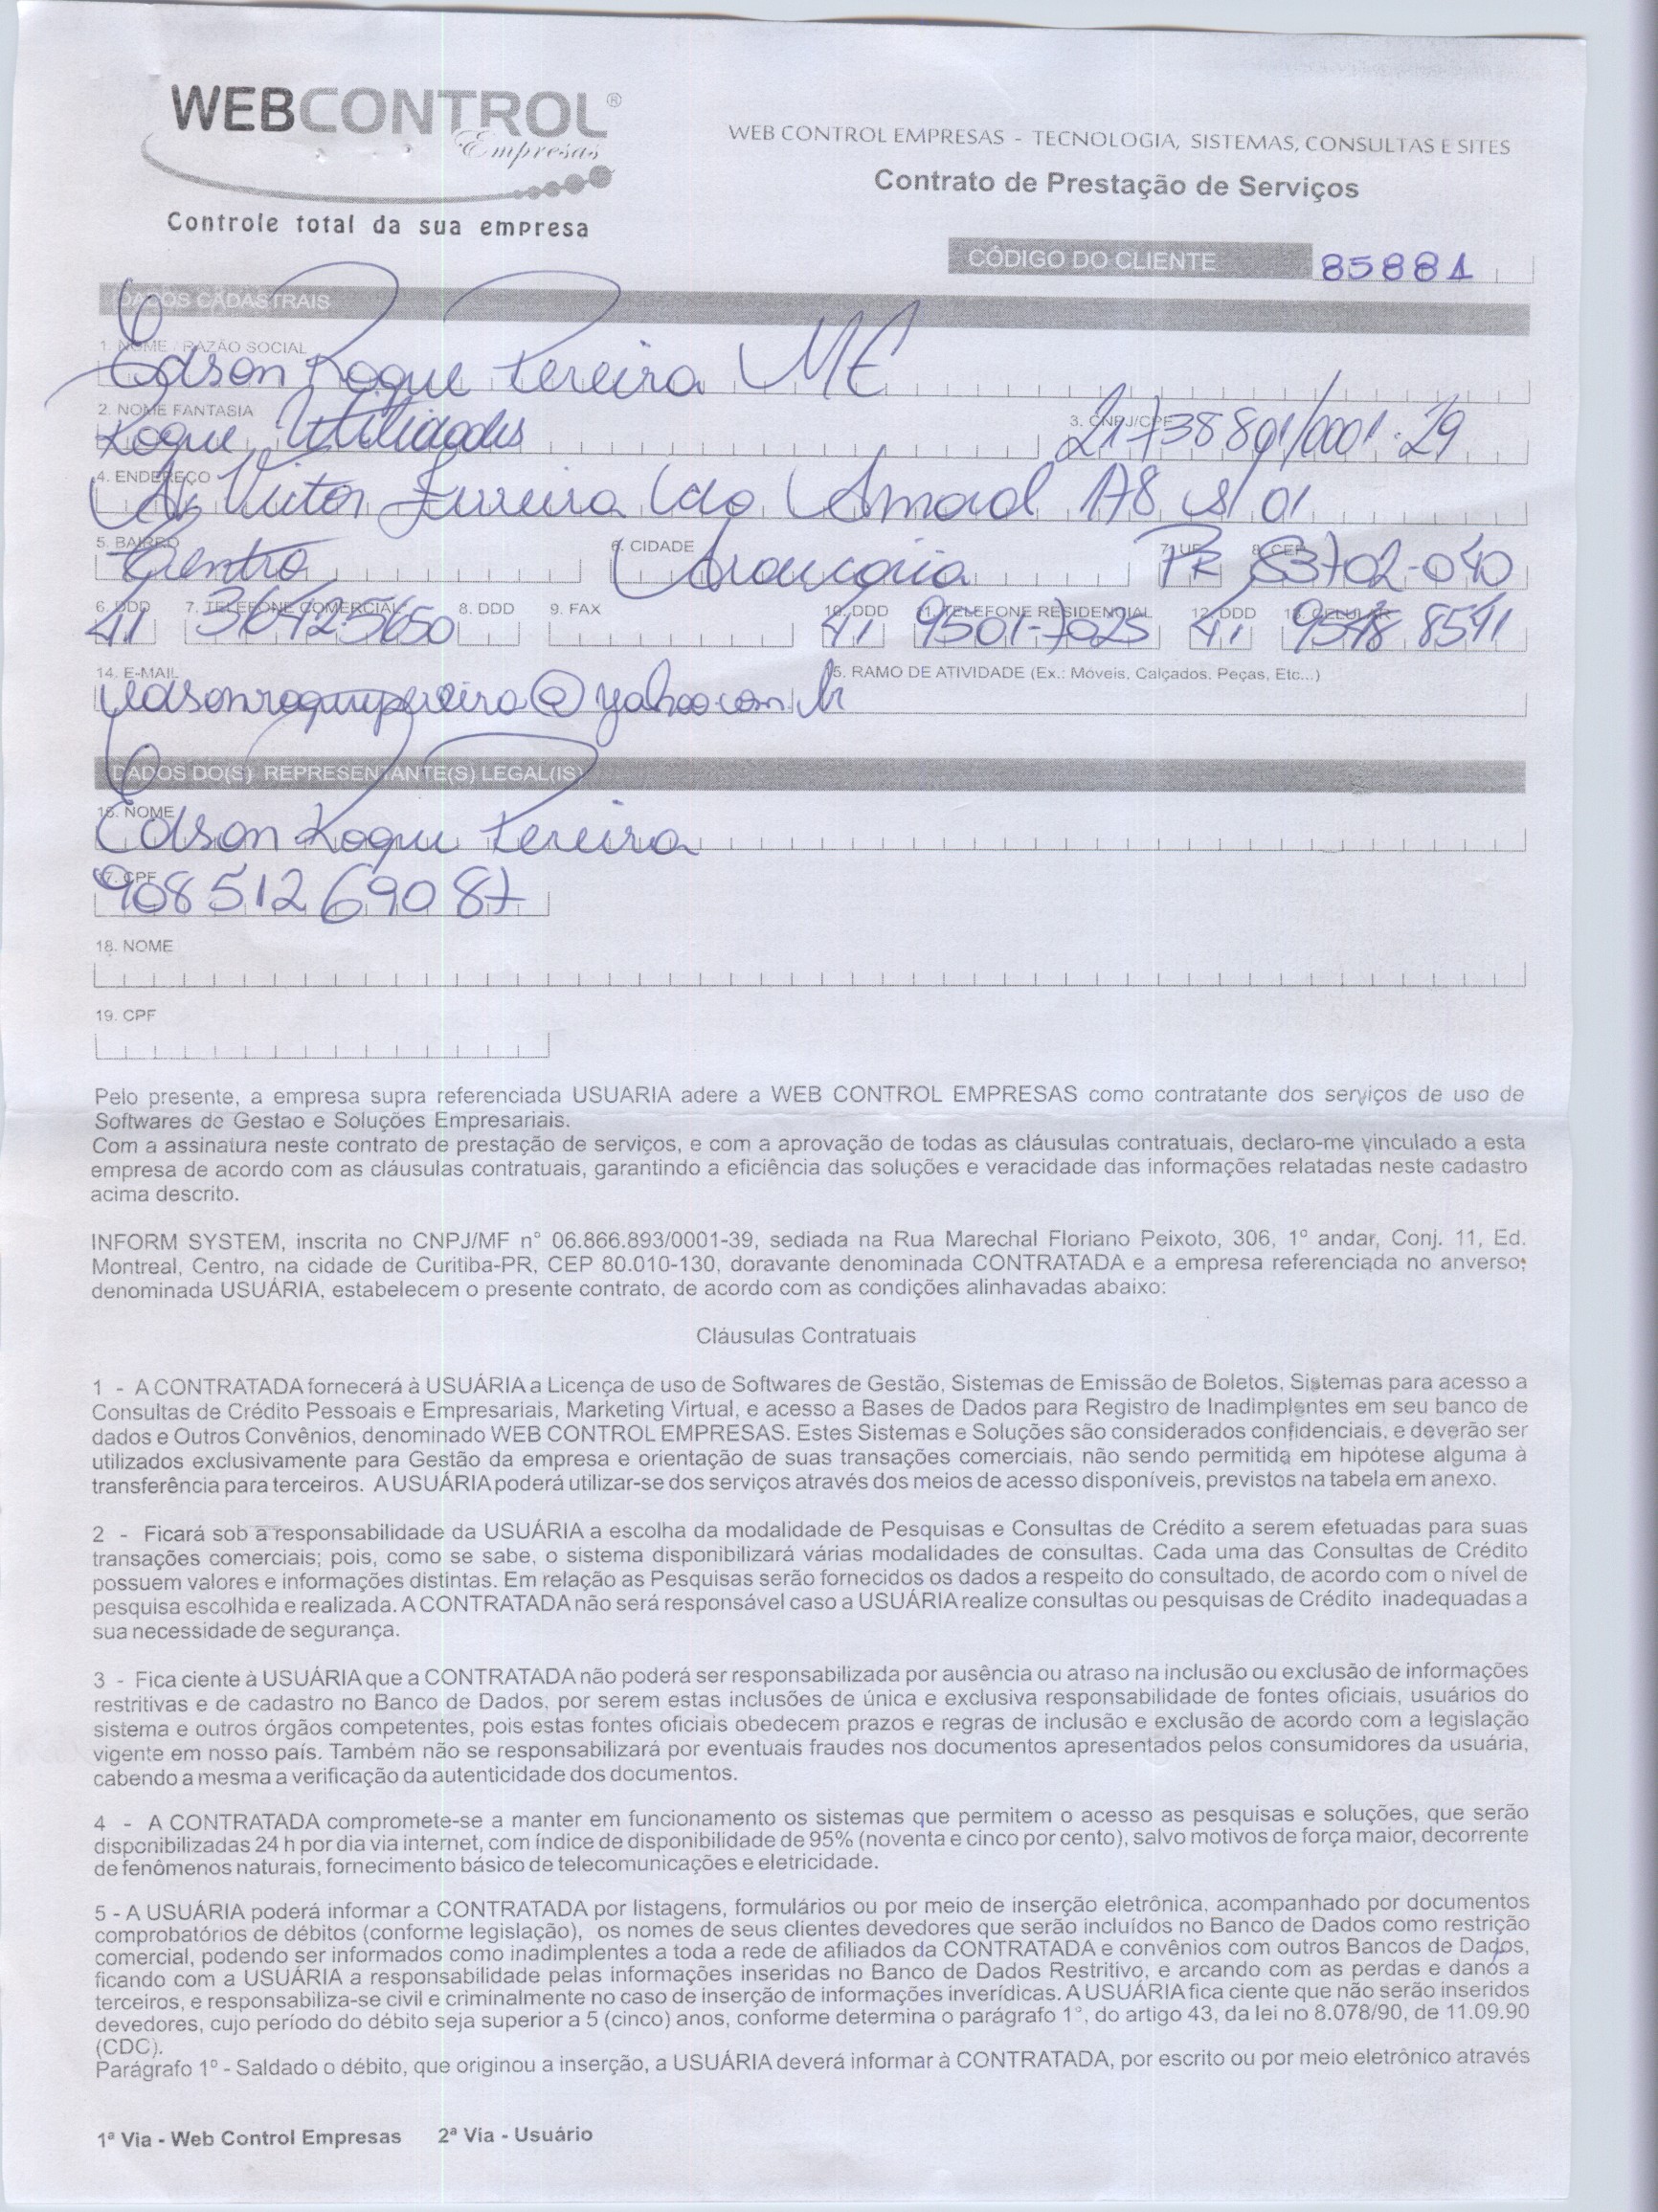 WEBCONTROL®
Empresas
Controle total da sua empresa
WEB CONTROL EMPRESAS - TECNOLOGIA, SISTEMAS, CONSULTAS E SITES
Contrato de Prestação de Serviços
CÓDIGO DO CLIENTE 85881
DADOS CADASTRAIS
1. NOME / RAZÃO SOCIAL
Edson Roque Pereira ME
2. NOME FANTASIA 3. CNPJ/CPF
Roque Utilidades 21738801/0001-29
4. ENDEREÇO
Av Victor Ferreira do Amaral 178 sl 01
5. BAIRRO 6. CIDADE 7. UF 8. CEP
Centro Araucaria PR 83702-040
6. DDD 7. TELEFONE COMERCIAL 8. DDD 9. FAX 10. DDD 11. TELEFONE RESIDENCIAL 12. DDD 13. CELULAR
41 36425650 41 9501-7025 41 9548 8541
14. E-MAIL 15. RAMO DE ATIVIDADE (Ex.: Móveis, Calçados, Peças, Etc...)
edsonroquepereira@yahoo.com.br
DADOS DO(S) REPRESENTANTE(S) LEGAL(IS)
16. NOME
Edson Roque Pereira
17. CPF
908 512 690 87
18. NOME
19. CPF
Pelo presente, a empresa supra referenciada USUARIA adere a WEB CONTROL EMPRESAS como contratante dos serviços de uso de
Softwares de Gestao e Soluções Empresariais.
Com a assinatura neste contrato de prestação de serviços, e com a aprovação de todas as cláusulas contratuais, declaro-me vinculado a esta
empresa de acordo com as cláusulas contratuais, garantindo a eficiência das soluções e veracidade das informações relatadas neste cadastro
acima descrito.
INFORM SYSTEM, inscrita no CNPJ/MF n° 06.866.893/0001-39, sediada na Rua Marechal Floriano Peixoto, 306, 1º andar, Conj. 11, Ed.
Montreal, Centro, na cidade de Curitiba-PR, CEP 80.010-130, doravante denominada CONTRATADA e a empresa referenciada no anverso;
denominada USUÁRIA, estabelecem o presente contrato, de acordo com as condições alinhavadas abaixo:
Cláusulas Contratuais
1 - A CONTRATADA fornecerá à USUÁRIA a Licença de uso de Softwares de Gestão, Sistemas de Emissão de Boletos, Sistemas para acesso a
Consultas de Crédito Pessoais e Empresariais, Marketing Virtual, e acesso a Bases de Dados para Registro de Inadimplentes em seu banco de
dados e Outros Convênios, denominado WEB CONTROL EMPRESAS. Estes Sistemas e Soluções são considerados confidenciais, e deverão ser
utilizados exclusivamente para Gestão da empresa e orientação de suas transações comerciais, não sendo permitida em hipótese alguma à
transferência para terceiros. A USUÁRIA poderá utilizar-se dos serviços através dos meios de acesso disponíveis, previstos na tabela em anexo.
2 - Ficará sob a responsabilidade da USUÁRIA a escolha da modalidade de Pesquisas e Consultas de Crédito a serem efetuadas para suas
transações comerciais; pois, como se sabe, o sistema disponibilizará várias modalidades de consultas. Cada uma das Consultas de Crédito
possuem valores e informações distintas. Em relação as Pesquisas serão fornecidos os dados a respeito do consultado, de acordo com o nível de
pesquisa escolhida e realizada. A CONTRATADA não será responsável caso a USUÁRIA realize consultas ou pesquisas de Crédito inadequadas a
sua necessidade de segurança.
3 - Fica ciente à USUÁRIA que a CONTRATADA não poderá ser responsabilizada por ausência ou atraso na inclusão ou exclusão de informações
restritivas e de cadastro no Banco de Dados, por serem estas inclusões de única e exclusiva responsabilidade de fontes oficiais, usuários do
sistema e outros órgãos competentes, pois estas fontes oficiais obedecem prazos e regras de inclusão e exclusão de acordo com a legislação
vigente em nosso país. Também não se responsabilizará por eventuais fraudes nos documentos apresentados pelos consumidores da usuária,
cabendo a mesma a verificação da autenticidade dos documentos.
4 - A CONTRATADA compromete-se a manter em funcionamento os sistemas que permitem o acesso as pesquisas e soluções, que serão
disponibilizadas 24 h por dia via internet, com índice de disponibilidade de 95% (noventa e cinco por cento), salvo motivos de força maior, decorrente
de fenômenos naturais, fornecimento básico de telecomunicações e eletricidade.
5 - A USUÁRIA poderá informar a CONTRATADA por listagens, formulários ou por meio de inserção eletrônica, acompanhado por documentos
comprobatórios de débitos (conforme legislação), os nomes de seus clientes devedores que serão incluídos no Banco de Dados como restrição
comercial, podendo ser informados como inadimplentes a toda a rede de afiliados da CONTRATADA e convênios com outros Bancos de Dados,
ficando com a USUÁRIA a responsabilidade pelas informações inseridas no Banco de Dados Restritivo, e arcando com as perdas e danos a
terceiros, e responsabiliza-se civil e criminalmente no caso de inserção de informações inverídicas. A USUÁRIA fica ciente que não serão inseridos
devedores, cujo período do débito seja superior a 5 (cinco) anos, conforme determina o parágrafo 1°, do artigo 43, da lei no 8.078/90, de 11.09.90
(CDC).
Parágrafo 1º - Saldado o débito, que originou a inserção, a USUÁRIA deverá informar à CONTRATADA, por escrito ou por meio eletrônico através
1ª Via - Web Control Empresas 2ª Via - Usuário